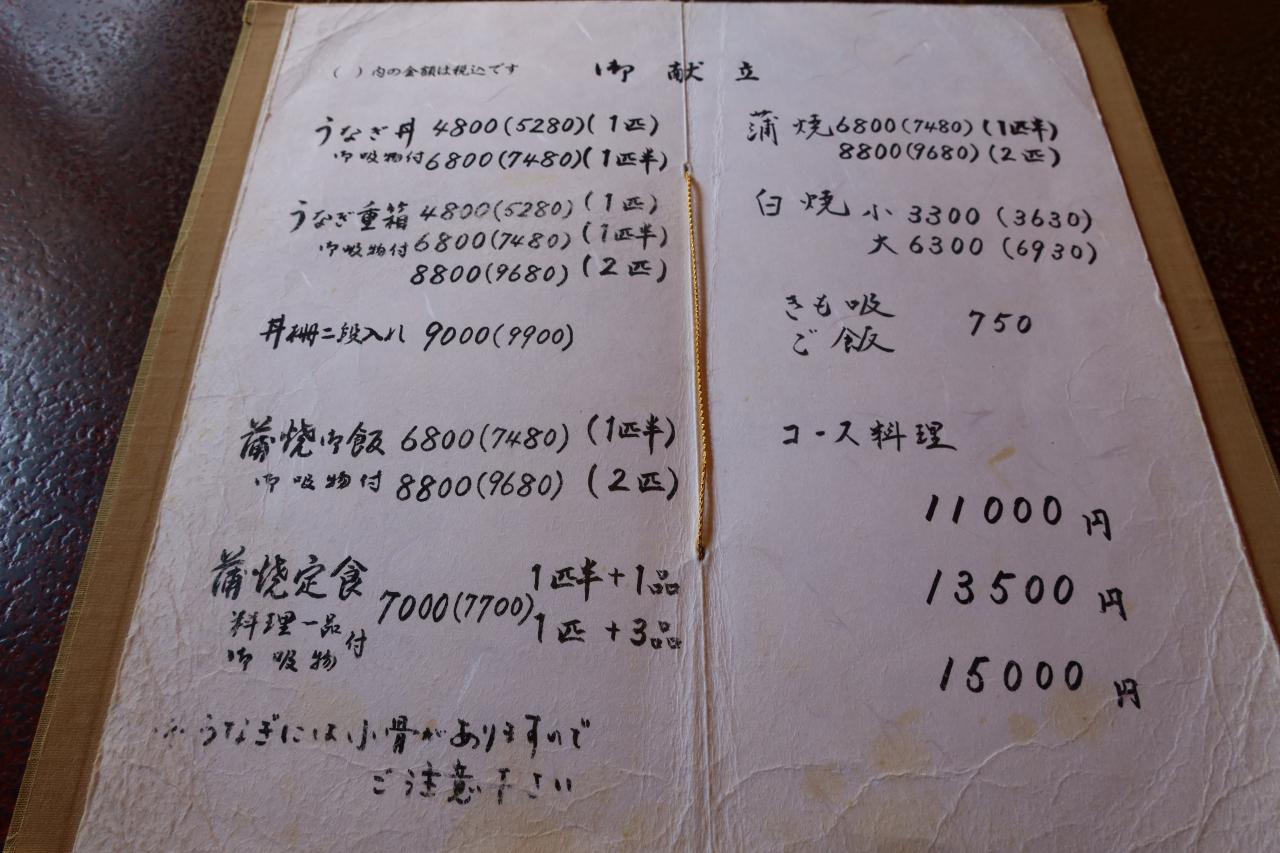 ( )内の金額は税込です
御献立
うなぎ丼 4800(5280)(1匹)
御吸物付 6800(7480)(1匹半)
うなぎ重箱 4800(5280)(1匹)
御吸物付 6800(7480)(1匹半)
8800(9680)(2匹)
丼柵二段入れ 9000(9900)
蒲焼御飯 6800(7480)(1匹半)
御吸物付 8800(9680)(2匹)
蒲焼定食 7000(7700) 1匹半+1品
料理一品付 1匹+3品
御吸物
うなぎには小骨がありますので
ご注意下さい
蒲焼 6800(7480)(1匹半)
8800(9680)(2匹)
白焼 小 3300(3630)
大 6300(6930)
きも吸 750
ご飯
コース料理
11000円
13500円
15000円